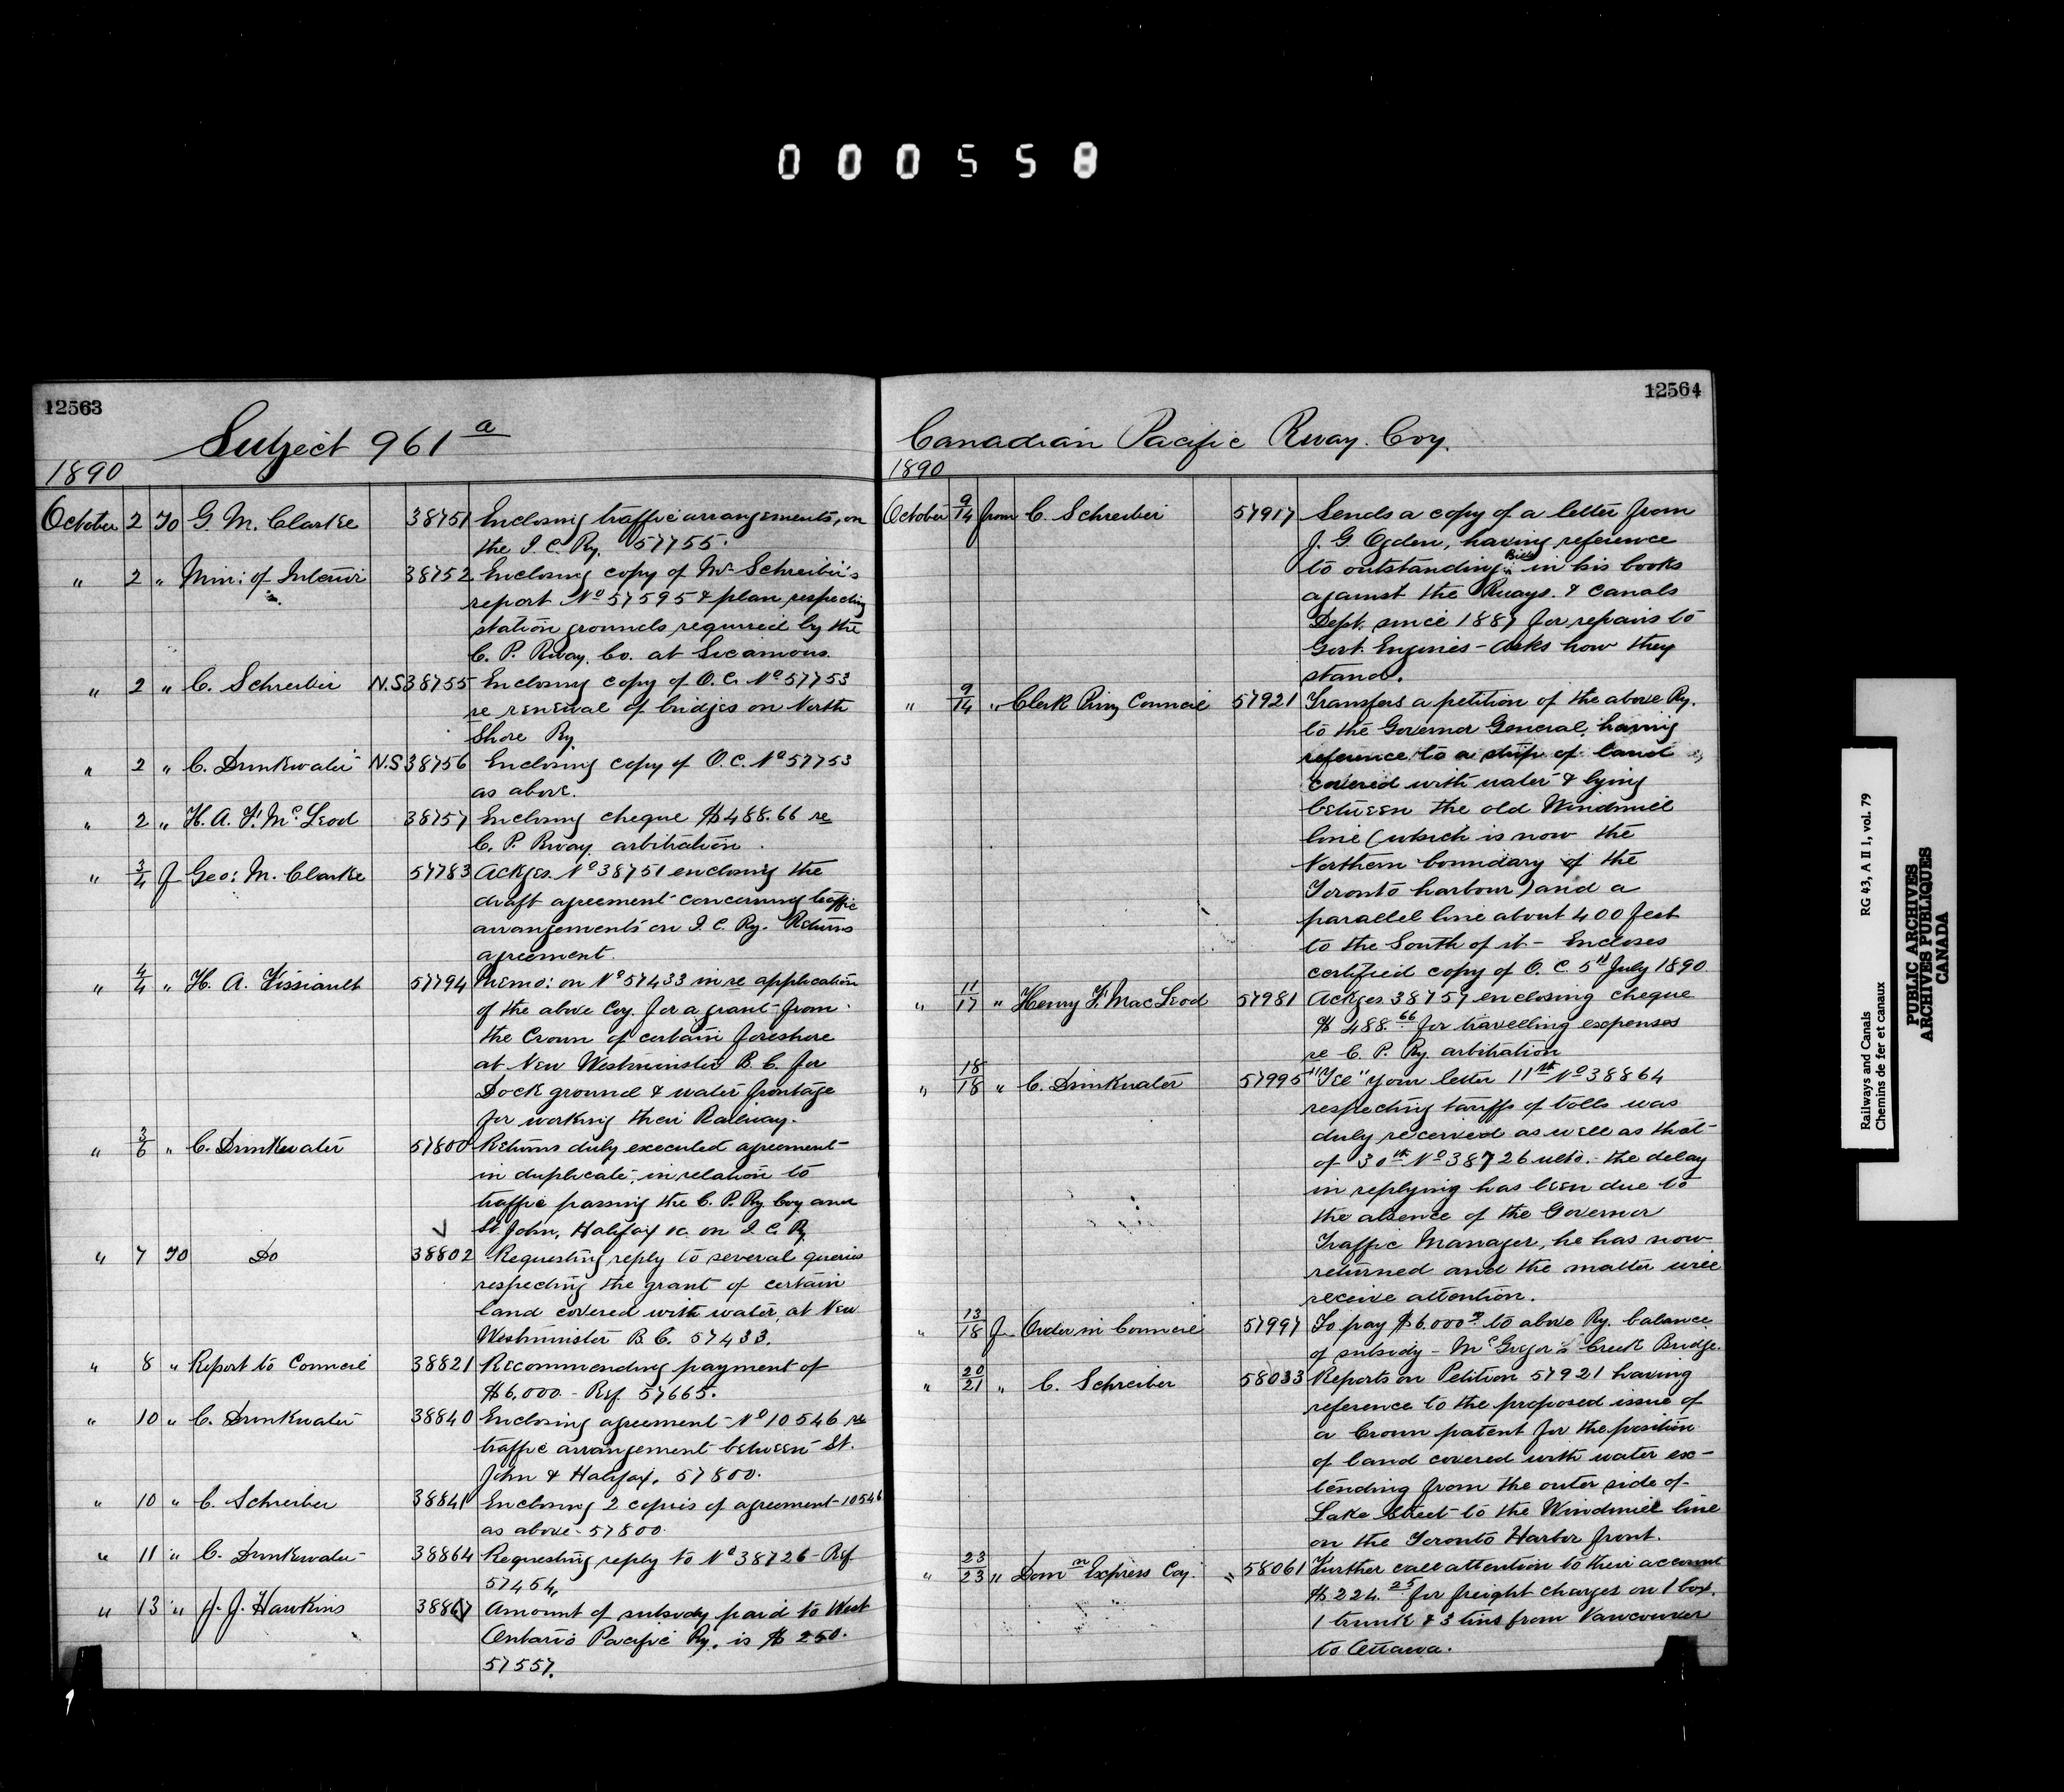 000558
12563
Subject 961 a
1890
October 2 To G. M. Clarke 38751 Enclosing traffic arrangements, on
the I. C. Ry. 57755.
" 2 " Min: of Interior 38752 Enclosing copy of Mr Schreiber's
report No 57595 & plan respecting
station grounds required by the
C. P. Rway. Co. at Sicamous.
" 2 " C. Schreiber N.S 38755 Enclosing copy of O.C. No 57753
re renewal of bridges on North
Shore Ry.
" 2 " C. Drinkwater N.S 38756 Enclosing copy of O.C. No 57753
as above.
" 2 " H. A. F. McLeod 38757 Enclosing cheque $488.66 re
C. P. Rway. arbitration.
" 3/4 f Geo: M. Clarke 57783 Ackges. No 38751 enclosing the
draft agreement concerning traffic
arrangements on I. C. Ry. Returns
agreement.
" 4/4 " H. A. Fissiault 57794 Memo: on No 57433 in re application
of the above Coy. for a grant from
the Crown of certain foreshore
at New Westminster B. C. for
Dock ground & water frontage
for working their Railway.
" 3/6 " C. Drinkwater 57800 Returns duly executed agreement
in duplicate, in relation to
traffic passing the C. P. Ry Coy and
St. John, Halifax &c. on I. C. Ry
" 7 To Do 38802 Requesting reply to several queries
respecting the grant of certain
land covered with water, at New
Westminster B. C. 57433.
" 8 " Report to Council 38821 Recommending payment of
$6,000 - Ref. 57665.
" 10 " C. Drinkwater 38840 Enclosing agreement No 10546 re
traffic arrangement between St.
John & Halifax. 57800.
" 10 " C. Schreiber 38841 Enclosing 2 copies of agreement 10546
as above - 57800.
" 11 " C. Drinkwater 38864 Requesting reply to No 38726 - Ref
57454.
" 13 " J. J. Hawkins 38867 Amount of subsidy paid to West
Ontario Pacific Ry. is $ 250.
57557.
12564
Canadian Pacific Rway. Coy.
1890
October 9/14 from C. Schreiber 57917 Sends a copy of a letter from
J. G. Ogden, having reference
to outstanding Bills in his books
against the Rways. & Canals
Dept. since 1887 for repairs to
Govt. Engines - Asks how they
stand.
" 9/14 " Clerk Privy Council 57921 Transfers a petition of the above Ry.
to the Governor General, having
reference to a strip of land
covered with water & lying
between the old Windmill
line (which is now the
Northern boundary of the
Toronto harbour) and a
parallel line about 400 feet
to the South of it - Encloses
certified copy of O. C. 5th July 1890
" 11/17 " Henry F. MacLeod 57981 Ackges 38757 enclosing cheque
$ 488.66 for travelling expenses
re C. P. Ry. arbitration
" 18/18 " C. Drinkwater 57995 "Tel" your letter 11th No 38864
respecting tariffs of tolls was
duly received as well as that
of 30th No 38726 ulto. - the delay
in replying has been due to
the absence of the Governor
Traffic Manager, he has now
returned and the matter will
receive attention.
" 13/18 f Order in Council 57997 To pay $6.000 to above Ry. balance
of subsidy - McGregor's Creek Bridge.
" 20/21 " C. Schreiber 58033 Reports on Petition 57921 having
reference to the proposed issue of
a Crown patent for the position
of land covered with water ex-
tending from the outer side of
Lake Street to the Windmill line
on the Toronto Harbor front.
" 23/23 " Domn Express Coy. " 58061 Further call attention to their account
$224.25 for freight charges on 1 box,
1 trunk & 3 tins from Vancouver
to Ottawa.
Railways and Canals RG 43, A II 1, vol. 79
Chemins de fer et canaux
PUBLIC ARCHIVES
ARCHIVES PUBLIQUES
CANADA